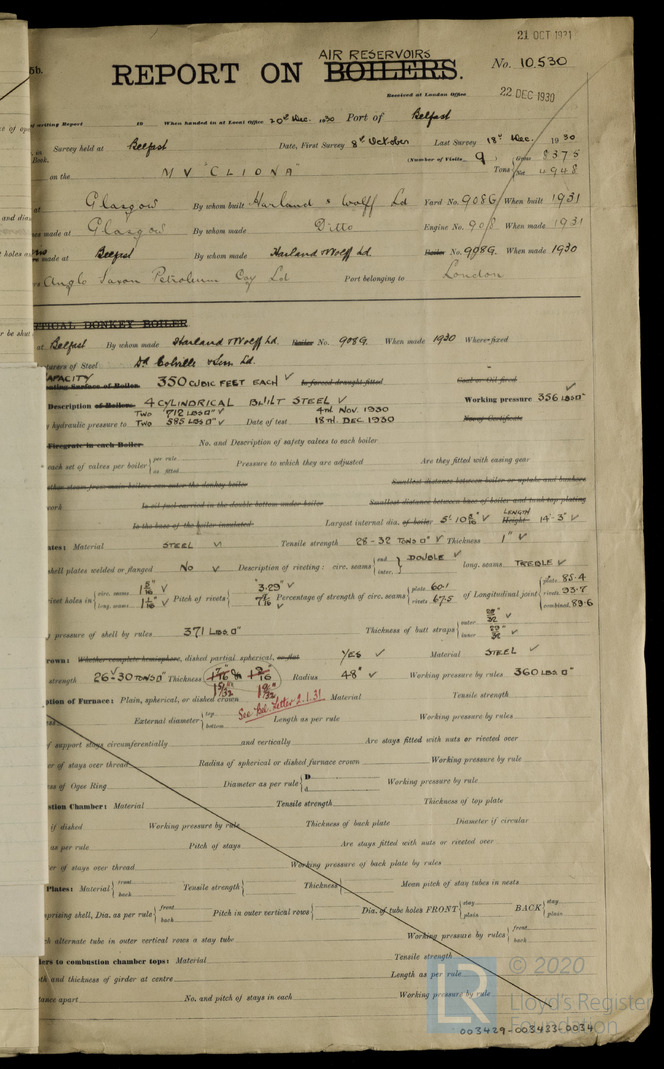 21 OCT 1931
5b.
AIR RESERVOIRS
REPORT ON BOILERS.
No. 10,530
Received at London Office
22 DEC 1930
writing Report 19 When handed in at Local Office 20th Dec. 1930 Port of Belfast
Survey held at Belfast Date, First Survey 8th October Last Survey 18th Dec. 1930
Book.
(Number of Visits 9) Gross 8375
on the M V "CLIONA" Tons Net 4948
at Glasgow By whom built Harland & Wolff Ld Yard No. 908G When built 1931
made at Glasgow By whom made Ditto Engine No. 908 When made 1931
made at Belfast By whom made Harland & Wolff Ld. Boiler No. 908G. When made 1930
Anglo Saxon Petroleum Coy Ld Port belonging to London
VERTICAL DONKEY BOILER
at Belfast By whom made Harland & Wolff Ld. Boiler No. 908G. When made 1930 Where fixed
of Steel D. Colville & Sons Ld.
CAPACITY
Heating Surface of Boiler 350 CUBIC FEET EACH ✓ Is forced draught fitted Coal or Oil fired
Description of Boilers 4 CYLINDRICAL BUILT STEEL ✓ Working pressure 356 LBS □" ✓
TWO 712 LBS □" ✓ 4TH NOV. 1930
hydraulic pressure to TWO 585 LBS □" ✓ Date of test 18TH DEC 1930 No. of Certificate
Firegrate in each Boiler No. and Description of safety valves to each boiler
each set of valves per boiler per rule as fitted Pressure to which they are adjusted Are they fitted with easing gear
other steam from main boilers can enter the donkey boiler Smallest distance between boiler or uptake and bunkers
work Is oil fuel carried in the double bottom under boiler Smallest distance between base of boiler and tank top plating
Is the base of the boiler insulated Largest internal dia. of boiler 5' 10 5/16" ✓ LENGTH Height 14'-3" ✓
Material STEEL ✓ Tensile strength 28-32 TONS □" ✓ Thickness 1" ✓
shell plates welded or flanged NO ✓ Description of riveting: circ. seams end inter. DOUBLE ✓ long. seams TREBLE ✓
rivet holes in circ. seams long. seams 1 1/16" ✓ Pitch of rivets 3·29" ✓ Percentage of strength of circ. seams plate 60·1 rivets 67·5 of Longitudinal joint plate 85·4 rivets 93·7 combined 89·6
pressure of shell by rules 371 LBS □" Thickness of butt straps outer inner
Crown: Whether complete hemisphere, dished partial spherical, or flat YES ✓ Material STEEL ✓
strength 26-30 TONS □" ✓ Thickness Radius 48" ✓ Working pressure by rules 360 LBS □"
See Bel. Letter 2.1.31
ption of Furnace: Plain, spherical, or dished crown Material Tensile strength
External diameter top bottom Length as per rule Working pressure by rules
of support stays circumferentially and vertically Are stays fitted with nuts or riveted over
er of stays over thread Radius of spherical or dished furnace crown Working pressure by rule
ss of Ogee Ring Diameter as per rule D d Working pressure by rule
stion Chamber: Material Tensile strength Thickness of top plate
if dished Working pressure by rule Thickness of back plate Diameter if circular
as per rule Pitch of stays Are stays fitted with nuts or riveted over
er of stays over thread Working pressure of back plate by rules
Plates: Material front back Tensile strength Thickness Mean pitch of stay tubes in nests
prising shell, Dia. as per rule front back Pitch in outer vertical rows Dia. of tube holes FRONT stay plain BACK stay plain
ch alternate tube in outer vertical rows a stay tube Working pressure by rules front back
ers to combustion chamber tops: Material Tensile strength
th and thickness of girder at centre Length as per rule
tance apart No. and pitch of stays in each Working pressure by rule
LR
© 2020
Lloyd's Register
Foundation
003429-003433-0034